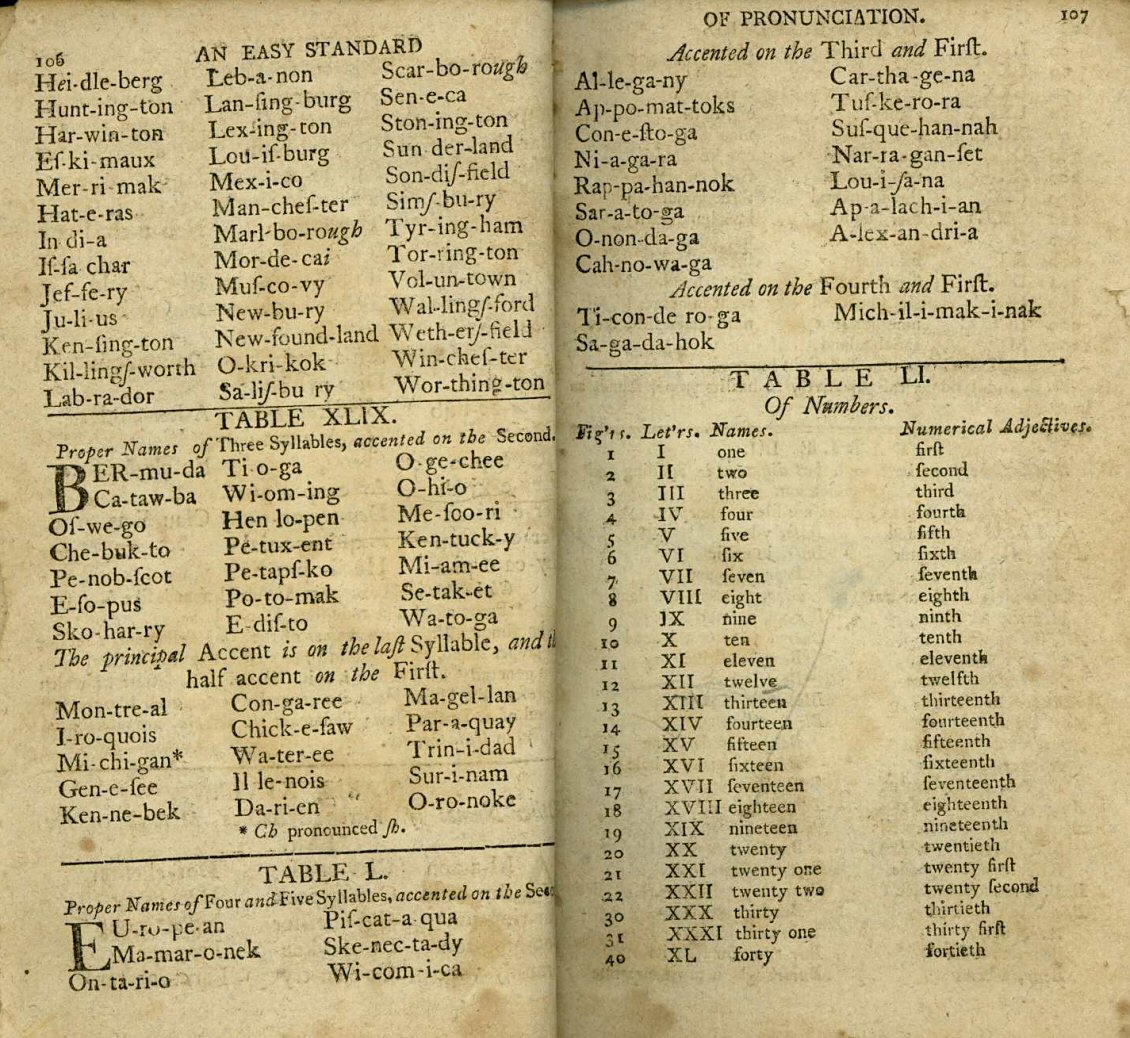 106 AN EASY STANDARD
Hei-dle-berg Leb-a-non Scar-bo-rough
Hunt-ing-ton Lan-ſing-burg Sen-e-ca
Har-win-ton Lex-ing-ton Ston-ing-ton
Eſ-ki-maux Lou-iſ-burg Sun der-land
Mer-ri mak Mex-i-co Son-diſ-field
Hat-e-ras Man-cheſ-ter Simſ-bu-ry
In di-a Marl-bo-rough Tyr-ing-ham
Iſ-ſa char Mor-de-cai Tor-ring-ton
Jef-fe-ry Muſ-co-vy Vol-un-town
Ju-li-us New-bu-ry Wal-lingſ-ford
Ken-ſing-ton New-found-land Weth-erſ-field
Kil-lingſ-worth O-kri-kok Win-cheſ-ter
Lab-ra-dor Sa-liſ-bu ry Wor-thing-ton
TABLE XLIX.
Proper Names of Three Syllables, accented on the Second.
BER-mu-da Ti o-ga O-ge-chee
Ca-taw-ba Wi-om-ing O-hi-o
Oſ-we-go Hen lo-pen Me-ſoo-ri
Che-buk-to Pe-tux-ent Ken-tuck-y
Pe-nob-ſcot Pe-tapſ-ko Mi-am-ee
E-ſo-pus Po-to-mak Se-tak-et
Sko-har-ry E-diſ-to Wa-to-ga
The principal Accent is on the laſt Syllable, and
half accent on the Firſt.
Mon-tre-al Con-ga-ree Ma-gel-lan
I-ro-quois Chick-e-ſaw Par-a-quay
Mi-chi-gan* Wa-ter-ee Trin-i-dad
Gen-e-ſee Il le-nois Sur-i-nam
Ken-ne-bek Da-ri-en O-ro-noke
* Ch pronounced ſh.
TABLE L.
Proper Names of Four and Five Syllables, accented on the
EU-ro-pe-an Piſ-cat-a-qua
Ma-mar-o-nek Ske-nec-ta-dy
On-ta-ri-o Wi-com-i-ca
OF PRONUNCIATION. 107
Accented on the Third and Firſt.
Al-le-ga-ny Car-tha-ge-na
Ap-po-mat-toks Tuſ-ke-ro-ra
Con-e-ſto-ga Suſ-que-han-nah
Ni-a-ga-ra Nar-ra-gan-ſet
Rap-pa-han-nok Lou-i-ſa-na
Sar-a-to-ga Ap-a-lach-i-an
O-non-da-ga A-lex-an-dri-a
Cah-no-wa-ga
Accented on the Fourth and Firſt.
Ti-con-de ro-ga Mich-il-i-mak-i-nak
Sa-ga-da-hok
TABLE LI.
Of Numbers.
Fig'rs. Let'rs. Names. Numerical Adjectives.
1 I one firſt
2 II two ſecond
3 III three third
4 IV four fourth
5 V five fifth
6 VI ſix ſixth
7 VII ſeven ſeventh
8 VIII eight eighth
9 IX nine ninth
10 X ten tenth
11 XI eleven eleventh
12 XII twelve twelfth
13 XIII thirteen thirteenth
14 XIV fourteen fourteenth
15 XV fifteen fifteenth
16 XVI ſixteen ſixteenth
17 XVII ſeventeen ſeventeenth
18 XVIII eighteen eighteenth
19 XIX nineteen nineteenth
20 XX twenty twentieth
21 XXI twenty one twenty firſt
22 XXII twenty two twenty ſecond
30 XXX thirty thirtieth
31 XXXI thirty one thirty firſt
40 XL forty fortieth